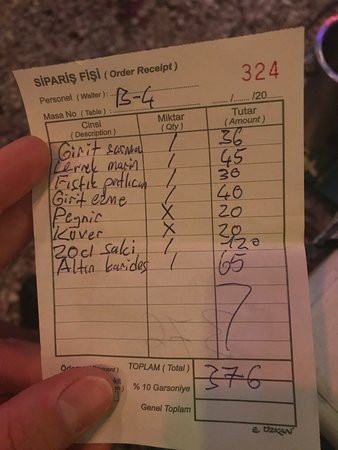 SİPARİŞ FİŞİ ( Order Receipt )
324
Personel ( Waiter ) : B-4
Masa No ( Table ) : ....../....../20......
Cinsi Miktar Tutar
( Description ) ( Qty ) ( Amount )
Girit / 36
Levrek marin / 45
Fıstık patlıcan / 30
Girit ezme / 40
Peynir X 20
Kuver X 20
20cl saki / 120
Altın karides / 65
TOPLAM ( Total ) 376
% 10 Garsoniye
Genel Toplam
ÖZKAN